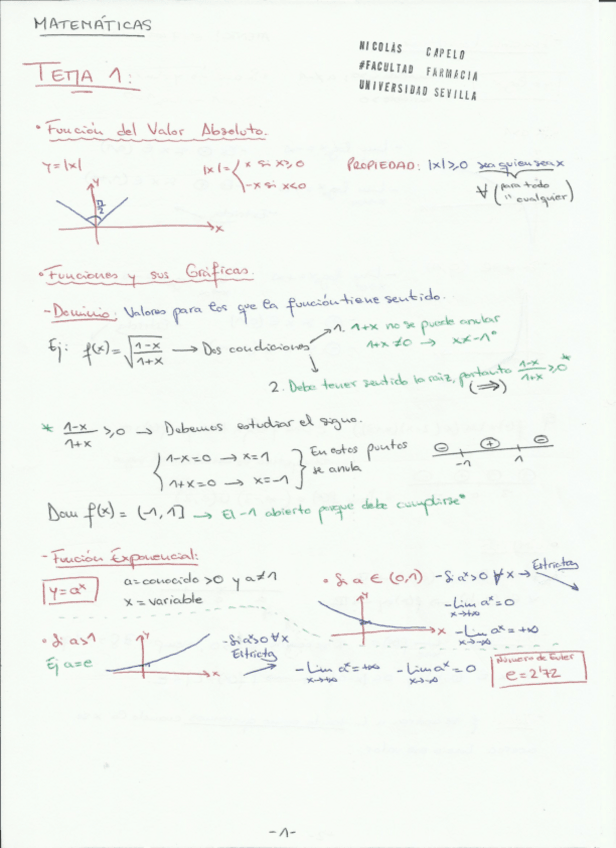 MATEMÁTICAS
NICOLÁS CAPELO
#FACULTAD FARMACIA
UNIVERSIDAD SEVILLA
TEMA 1:
• Función del Valor Absoluto.
y=|x|
|x|= { x si x≥0
-x si x<0
PROPIEDAD: |x|≥0 sea quien sea x
∀ (para todo
" cualquier)
y
π/2
x
• Funciones y sus Gráficas.
- Dominio: Valores para los que la función tiene sentido.
Ej: f(x)=√((1-x)/(1+x)) → Dos condiciones
1. 1+x no se puede anular
1+x≠0 → x≠-1°
2. Debe tener sentido la raiz, por tanto (1-x)/(1+x) ≥0*
(⇒)
* (1-x)/(1+x) ≥0 → Debemos estudiar el signo.
{ 1-x=0 → x=1
1+x=0 → x=-1 }
En estos puntos
se anula
⊖ ⊕ ⊖
-1 1
Dom f(x) = (-1,1] → El -1 abierto porque debe cumplirse°
- Función Exponencial:
y=aˣ
a=conocido >0 y a≠1
x = variable
• Si a ∈ (0,1)
- Si aˣ>0 ∀x → Estricta
y
x
- Lim aˣ=0
x→+∞
- Lim aˣ=+∞
x→-∞
• Si a>1
Ej a=e
y
x
- Si aˣ>0 ∀x
Estricta
- Lim aˣ=+∞
x→+∞
- Lim aˣ=0
x→-∞
Número de Euler
e=2'72
-1-